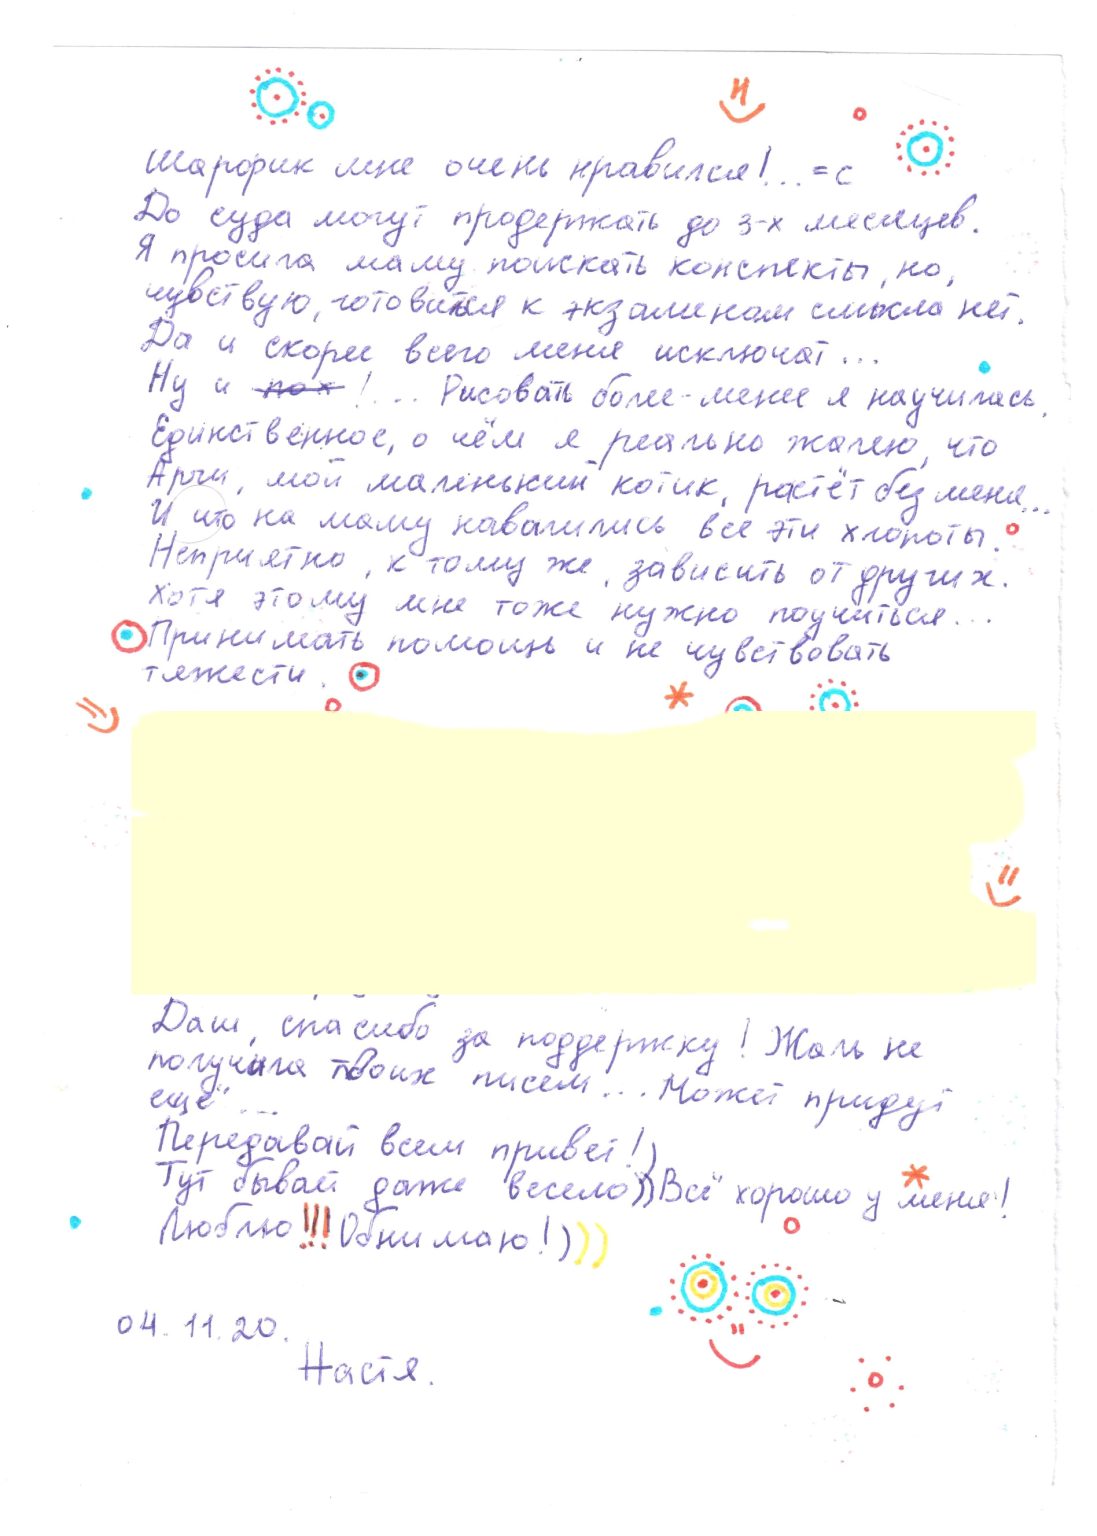 Шарфик мне очень нравился!... =с
До суда могут продержать до 3-х месяцев.
Я просила маму поискать конспекты, но,
чувствую, готовится к экзаменам смысла нет.
Да и скорее всего меня исключат...
Ну и пох!... Рисовать более-менее я научилась.
Единственное, о чём я реально жалею, что
Арчи, мой маленький котик, растёт без меня...
И что на маму навалились все эти хлопоты.
Неприятно, к тому же, зависить от других.
Хотя этому мне тоже нужно поучиться...
Принимать помощь и не чувствовать
тяжести.
Даш, спасибо за поддержку! Жаль не
получила твоих писем... Может придут
ещё...
Передавай всем привет!)
Тут бывай даже весело))Всё хорошо у меня!
Люблю!!! Обнимаю!)))
04.11.20.
Настя.